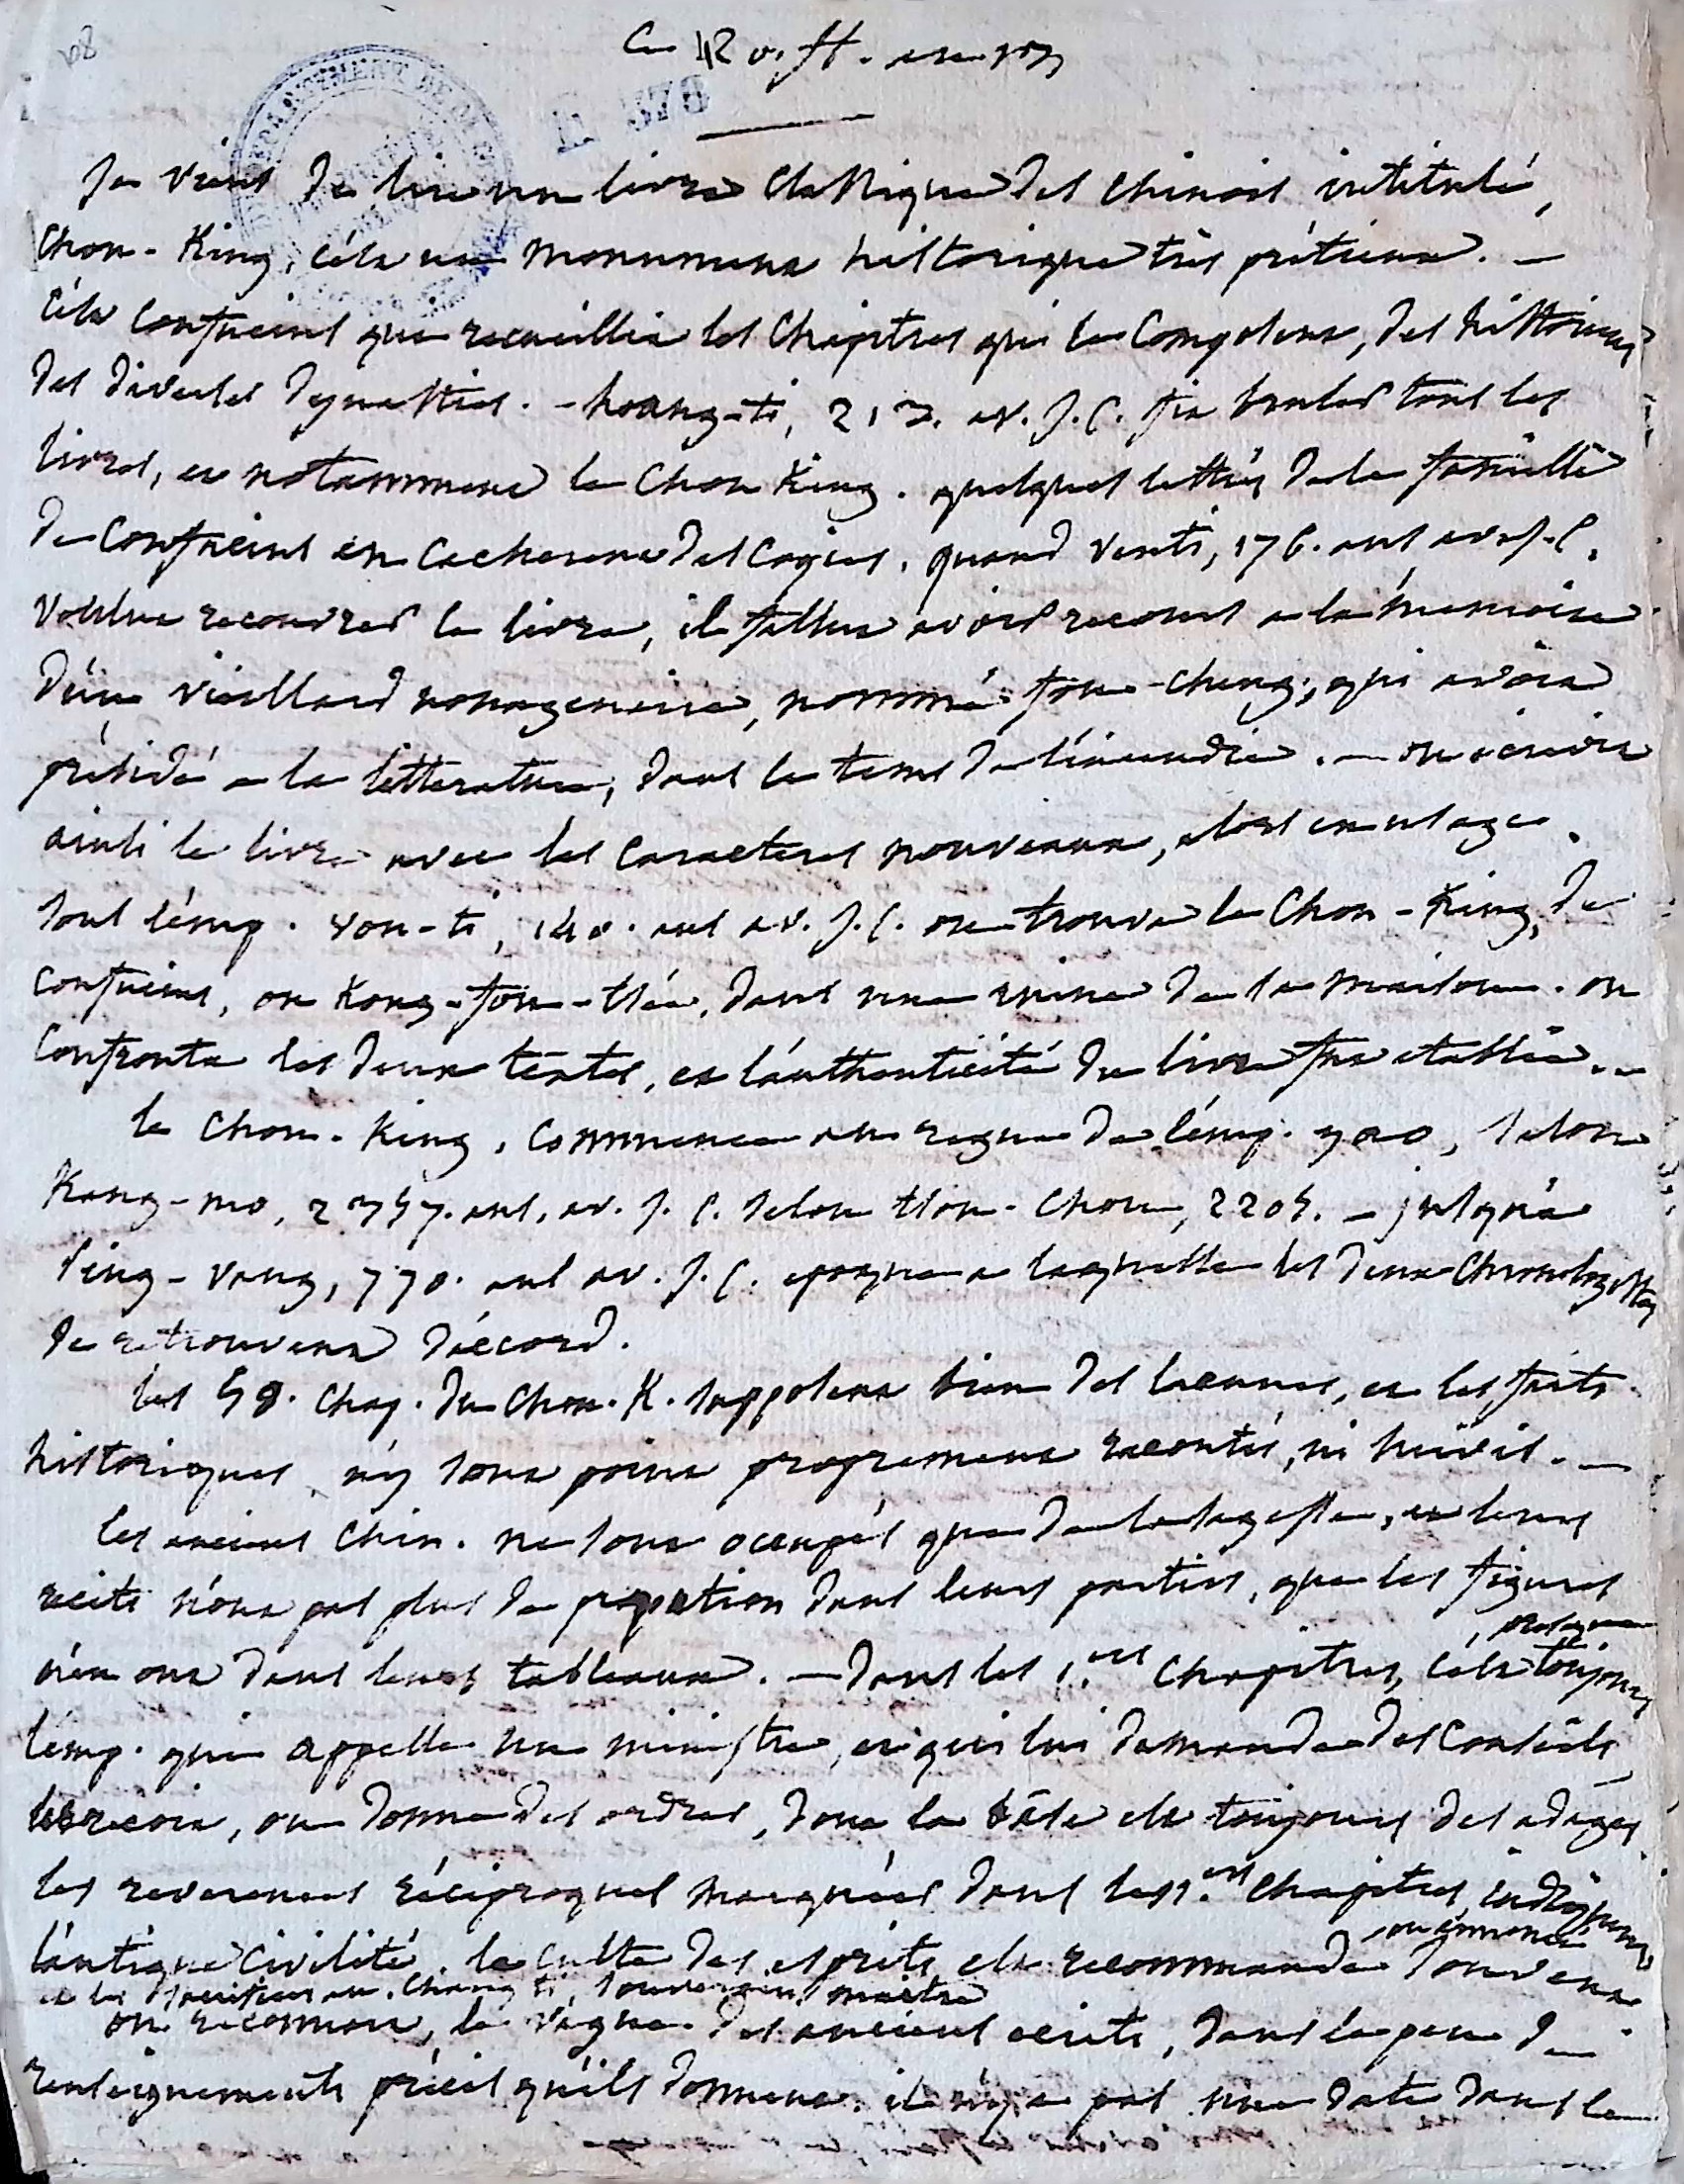 Je viens de lire un livre classique des Chinois intitulé,
Chou-King, c'est un monument historique très prétieux. —
C'est Confucius qui recueillit les Chapitres qui le Composent, des historiens
des diverses dynasties. - hoang-ti, 213. av. J. C. fit bruler tous les
livres, et notamment le Chou King. quelques lettrés de la famille
de Confucius en cacherent des copies, quand Venti, 176. ans av. J. C.
voulut recouvrer le livre, il fallut avoir recours a la mémoire
d'un vieillard nonagenaire, nommé fou-cheng, qui avoit
présidé a la litterature, dans le tems de l'incendie. — on écrivit
ainsi le livre avec les caracteres nouveaux, alors en usage.
sous l'emp. vou-ti, 140. ans av. J. C. on trouva le Chou-King, de
Confucius, ou Kong-fou-tsée, dans une ruine de sa maison. on
Confronta les deux textes, et l'authenticité du livre fut etablie. —
le Chou-King, Commence au regne de l'emp. yao, selon
Kang-mo, 2357. ans, av. J. C. selon tsou-chou, 2205. — jusqu'à
Ping-Vang, 770. ans av. J. C. epoque a laquelle les deux Chronologistes
se retrouvent d'accord.
les 58. chap. du Chou. K. supposent bien des lacunes, et les faits
historiques n'y sont point proprement racontés, ni suivis. —
les anciens Chin. ne sont occupés que de la sagesse, et leurs
recits n'ont pas plus de proportion dans leurs parties, que les figures
n'en ont dans leurs tableaux. — Dans les 1.ers Chapitres, c'est toujours
presque
l'emp. qui appelle un ministre, et qui lui demande des Conseils,
les reçoit, ou donne des ordres, dont la base est toujours des adages.
les reverences réciproques marquées dans les 1.ers chapitres indiquent
l'antique civilité. le culte des esprits est recommandé souvent
ou énoncé
et les sacrifices au Chang ti, souverain maitre
on reconnoit, le vague des anciens écrits, dans le peu de
renseignements précis qu'ils donnent. il n'y a pas une date dans le